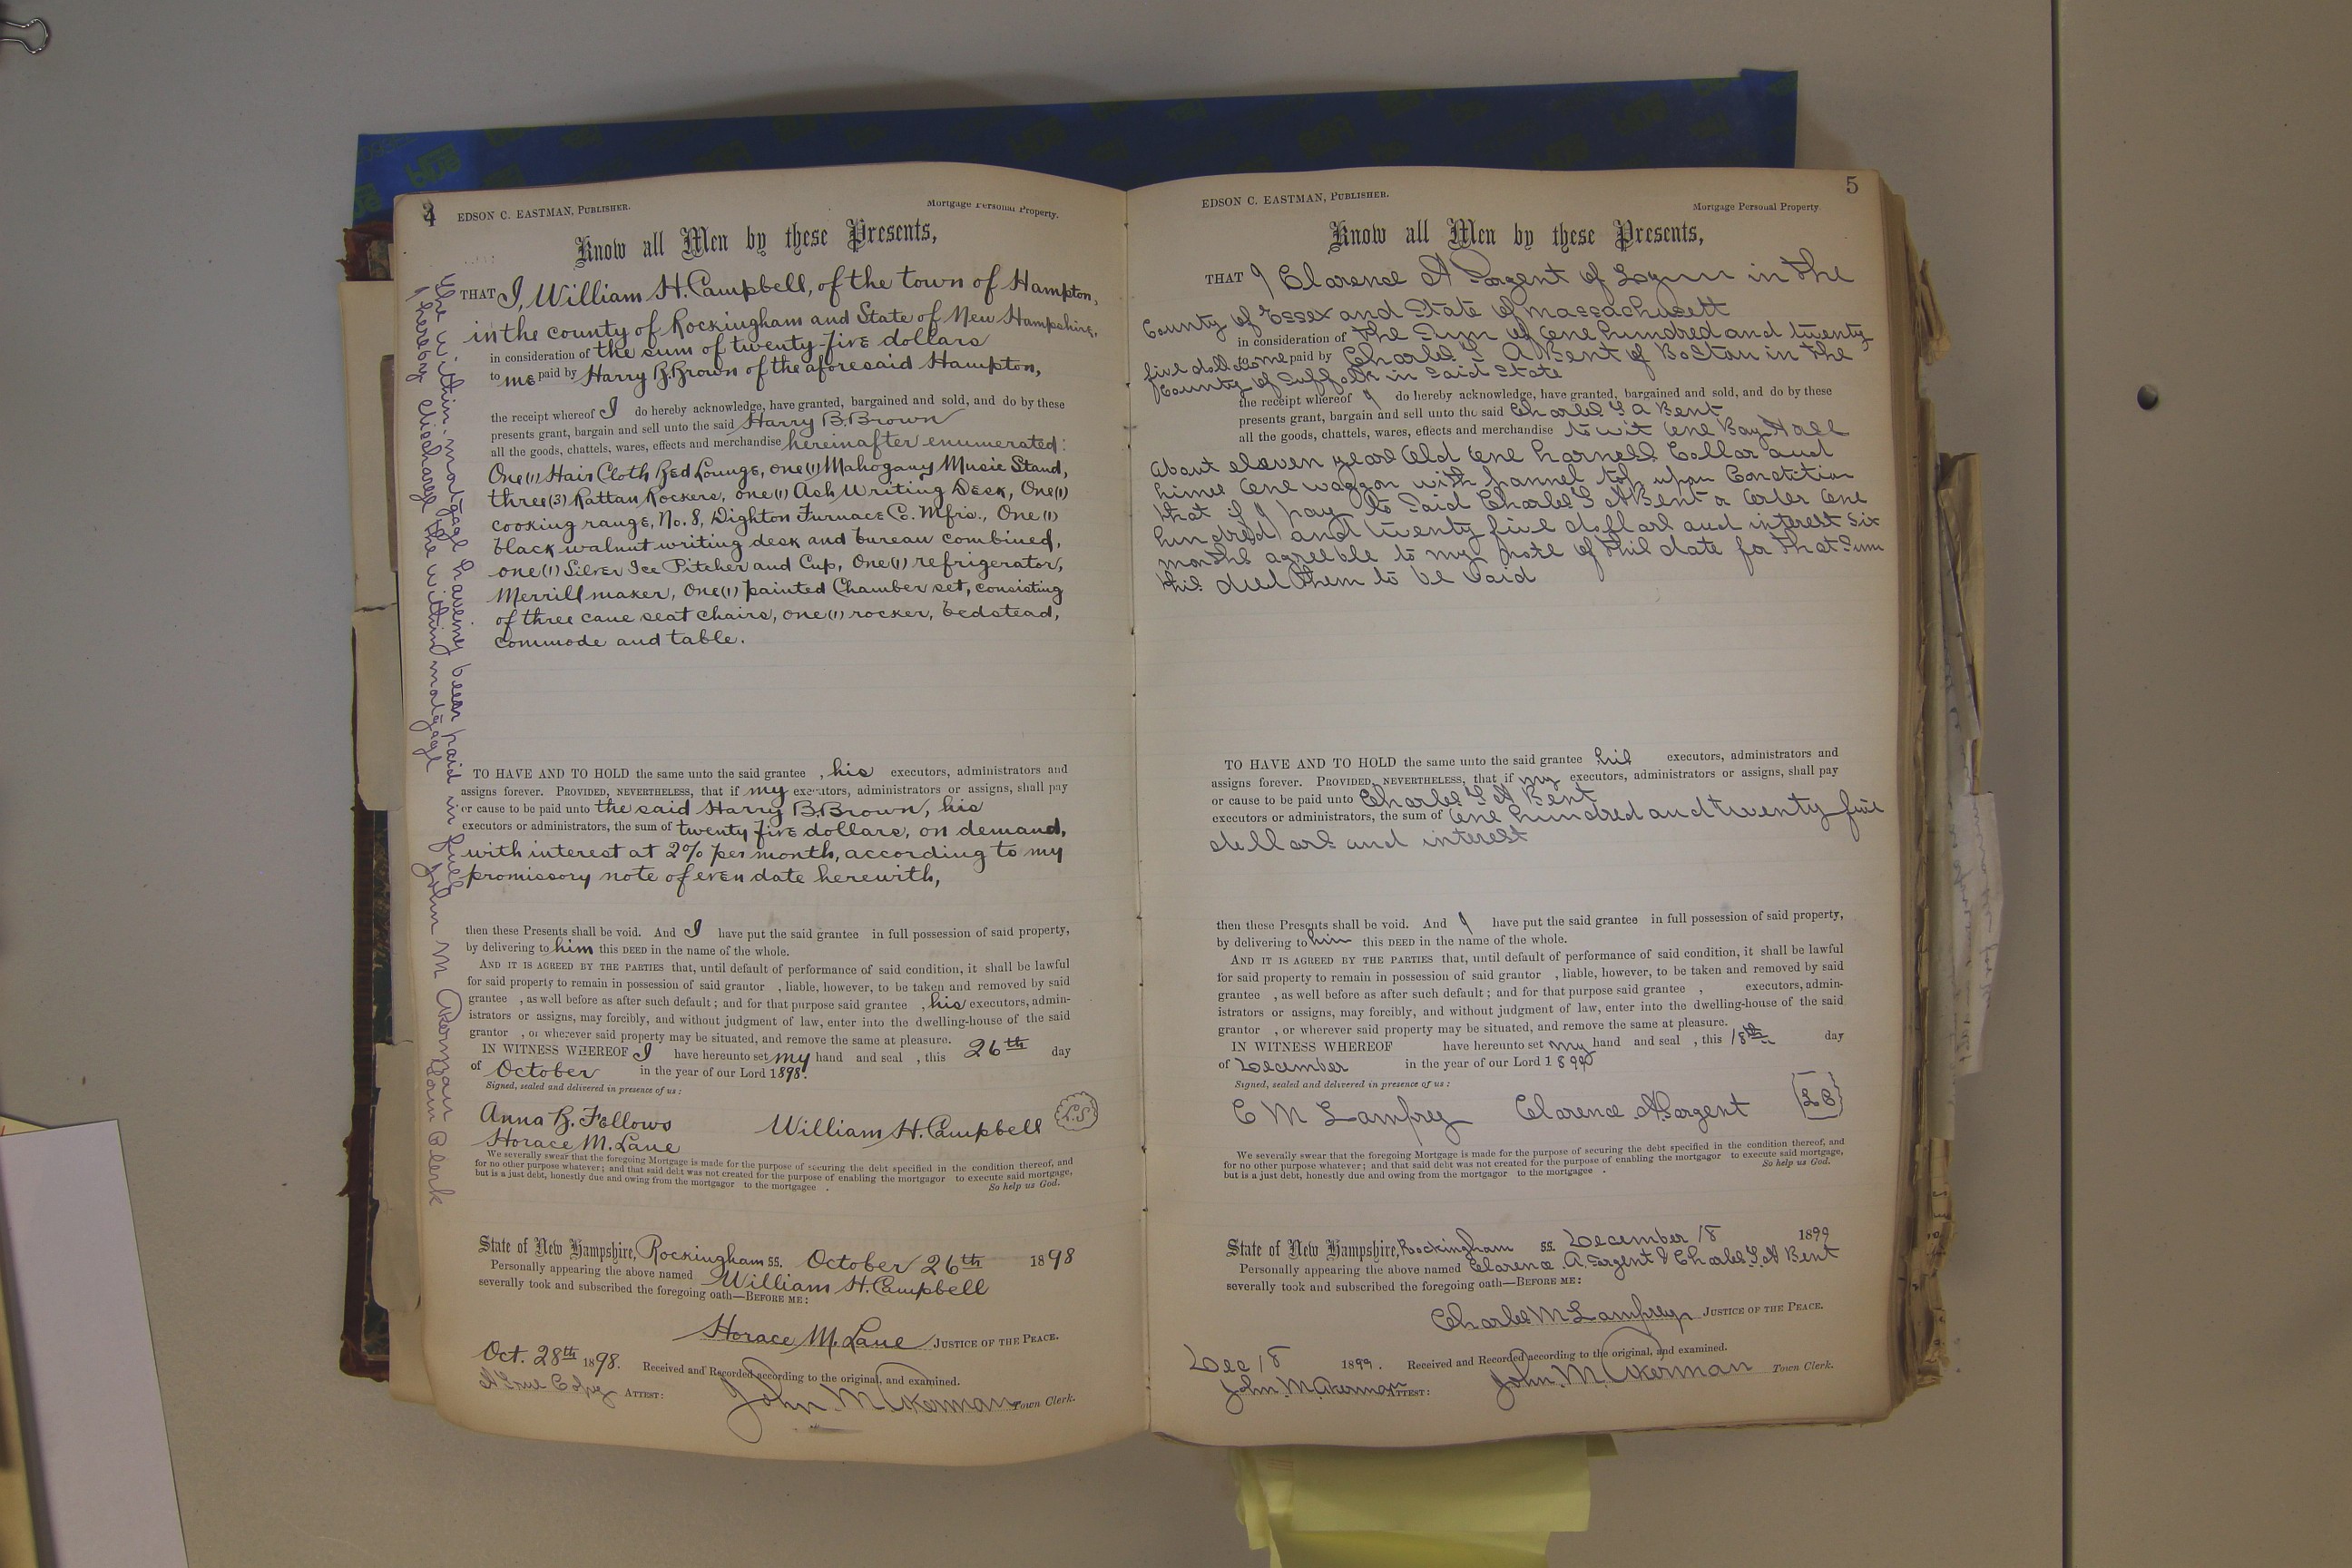 4
EDSON C. EASTMAN, PUBLISHER.
Mortgage Personal Property.
Know all Men by these Presents,
THAT I, William H. Campbell, of the town of Hampton,
in the county of Rockingham and State of New Hampshire,
in consideration of the sum of twenty-five dollars
to me paid by Harry B. Brown of the aforesaid Hampton,
the receipt whereof I do hereby acknowledge, have granted, bargained and sold, and do by these
presents grant, bargain and sell unto the said Harry B. Brown
all the goods, chattels, wares, effects and merchandise hereinafter enumerated:
One (1) Hair Cloth Bed Lounge, one (1) Mahogany Music Stand,
three (3) Rattan Rockers, one (1) Ash Writing Desk, One (1)
cooking range, No. 8, Dighton Furnace Co. Mfrs., One (1)
black walnut writing desk and bureau combined,
one (1) Silver Ice Pitcher and Cup, One (1) refrigerator,
Merrill maker, One (1) painted Chamber set, consisting
of three cane seat chairs, one (1) rocker, bedstead,
commode and table.
TO HAVE AND TO HOLD the same unto the said grantee , his executors, administrators and
assigns forever. PROVIDED, NEVERTHELESS, that if my executors, administrators or assigns, shall pay
or cause to be paid unto the said Harry B. Brown, his
executors or administrators, the sum of twenty five dollars, on demand,
with interest at 2% per month, according to my
promissory note of even date herewith,
then these Presents shall be void. And I have put the said grantee in full possession of said property,
by delivering to him this DEED in the name of the whole.
AND IT IS AGREED BY THE PARTIES that, until default of performance of said condition, it shall be lawful
for said property to remain in possession of said grantor , liable, however, to be taken and removed by said
grantee , as well before as after such default; and for that purpose said grantee , his executors, admin-
istrators or assigns, may forcibly, and without judgment of law, enter into the dwelling-house of the said
grantor , or wherever said property may be situated, and remove the same at pleasure.
IN WITNESS WHEREOF I have hereunto set my hand and seal , this 26th day
of October in the year of our Lord 1898.
Signed, sealed and delivered in presence of us:
Anna B. Fellows
William H. Campbell L.S.
Horace M. Lane
We severally swear that the foregoing Mortgage is made for the purpose of securing the debt specified in the condition thereof, and
for no other purpose whatever; and that said debt was not created for the purpose of enabling the mortgagor to execute said mortgage,
but is a just debt, honestly due and owing from the mortgagor to the mortgagee . So help us God.
State of New Hampshire, Rockingham SS. October 26th 1898
Personally appearing the above named William H. Campbell
severally took and subscribed the foregoing oath—BEFORE ME:
Horace M. Lane JUSTICE OF THE PEACE.
Oct. 28th 1898. Received and Recorded according to the original, and examined.
A True Copy ATTEST: John M Akerman Town Clerk.
the within mortgage haveing been paid in full
I hereby discharge the within mortgage John M Akerman Town Clerk
5
EDSON C. EASTMAN, PUBLISHER.
Mortgage Personal Property.
Know all Men by these Presents,
THAT I Clarence A Sargent of Lynn in the
County of Essex and State of Massachusett
in consideration of the Sum of one hundred and twenty
five dollars to me paid by Charles S A Bent of Boston in the
County of Suffolk in said State
the receipt whereof I do hereby acknowledge, have granted, bargained and sold, and do by these
presents grant, bargain and sell unto the said Charles S A Bent
all the goods, chattels, wares, effects and merchandise to wit one Bay
about eleven years old one harness Collar and
one waggon with pannel top upon Condition
that if I pay to said Charles S A Bent or order one
hundred and twenty five dollars and interest six
months agreeble to my note of this date for that sum
this deed them to be
TO HAVE AND TO HOLD the same unto the said grantee his executors, administrators and
assigns forever. PROVIDED, NEVERTHELESS, that if my executors, administrators or assigns, shall pay
or cause to be paid unto Charles S A Bent
executors or administrators, the sum of one hundred and twenty five
dollars and interest
then these Presents shall be void. And I have put the said grantee in full possession of said property,
by delivering to him this DEED in the name of the whole.
AND IT IS AGREED BY THE PARTIES that, until default of performance of said condition, it shall be lawful
for said property to remain in possession of said grantor , liable, however, to be taken and removed by said
grantee , as well before as after such default; and for that purpose said grantee , executors, admin-
istrators or assigns, may forcibly, and without judgment of law, enter into the dwelling-house of the said
grantor , or wherever said property may be situated, and remove the same at pleasure.
IN WITNESS WHEREOF have hereunto set my hand and seal , this 18th day
of December in the year of our Lord 1899
Signed, sealed and delivered in presence of us:
C M Lamprey Clarence A Sargent LS
We severally swear that the foregoing Mortgage is made for the purpose of securing the debt specified in the condition thereof, and
for no other purpose whatever; and that said debt was not created for the purpose of enabling the mortgagor to execute said mortgage,
but is a just debt, honestly due and owing from the mortgagor to the mortgagee . So help us God.
State of New Hampshire, Rockingham SS. December 18 1899
Personally appearing the above named Clarence A. Sargent & Charles S. A Bent
severally took and subscribed the foregoing oath—BEFORE ME:
Charles M Lamprey JUSTICE OF THE PEACE.
Dec 18 1899. Received and Recorded according to the original, and examined.
John M. Akerman ATTEST: John M. Akerman Town Clerk.